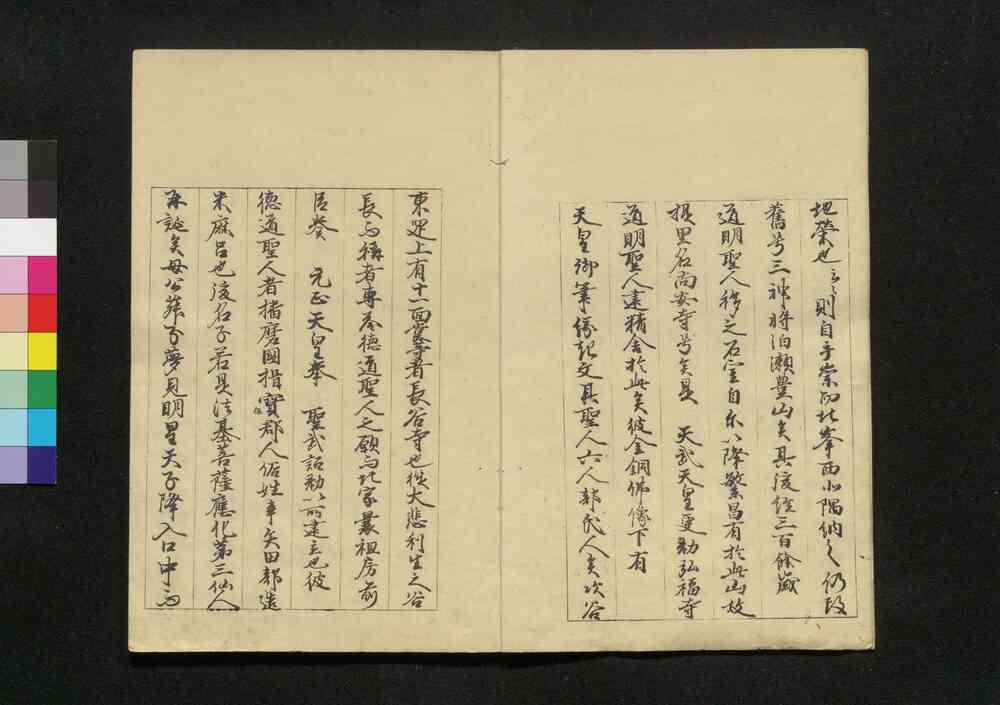 地榮也云々則自手崇此峯西北隅納之仍改
舊号三神將泊瀬豊山矣其後經三百餘歳
道明聖人移之石室自尓以降繁昌有於此山故
提里名尚安寺号矣是　天武天皇更勅弘福寺
道明聖人建精舎於此矣彼金銅佛像下有
天皇御筆縁起文具聖人六人部氏人矣次谷
東迎上有十一面堂者長谷寺也從大悲利生之谷
長而稱者専依德道聖人之願而北家曩祖房前
臣奏　元正天皇奉　聖武詔勅以所建立也彼
德道聖人者播磨國揖寳郡人俗姓辛矢田部造
米麻呂也後名子若是法基菩薩應化第三仙人
再誕矣母公葬子夢見明星天子降入口中而